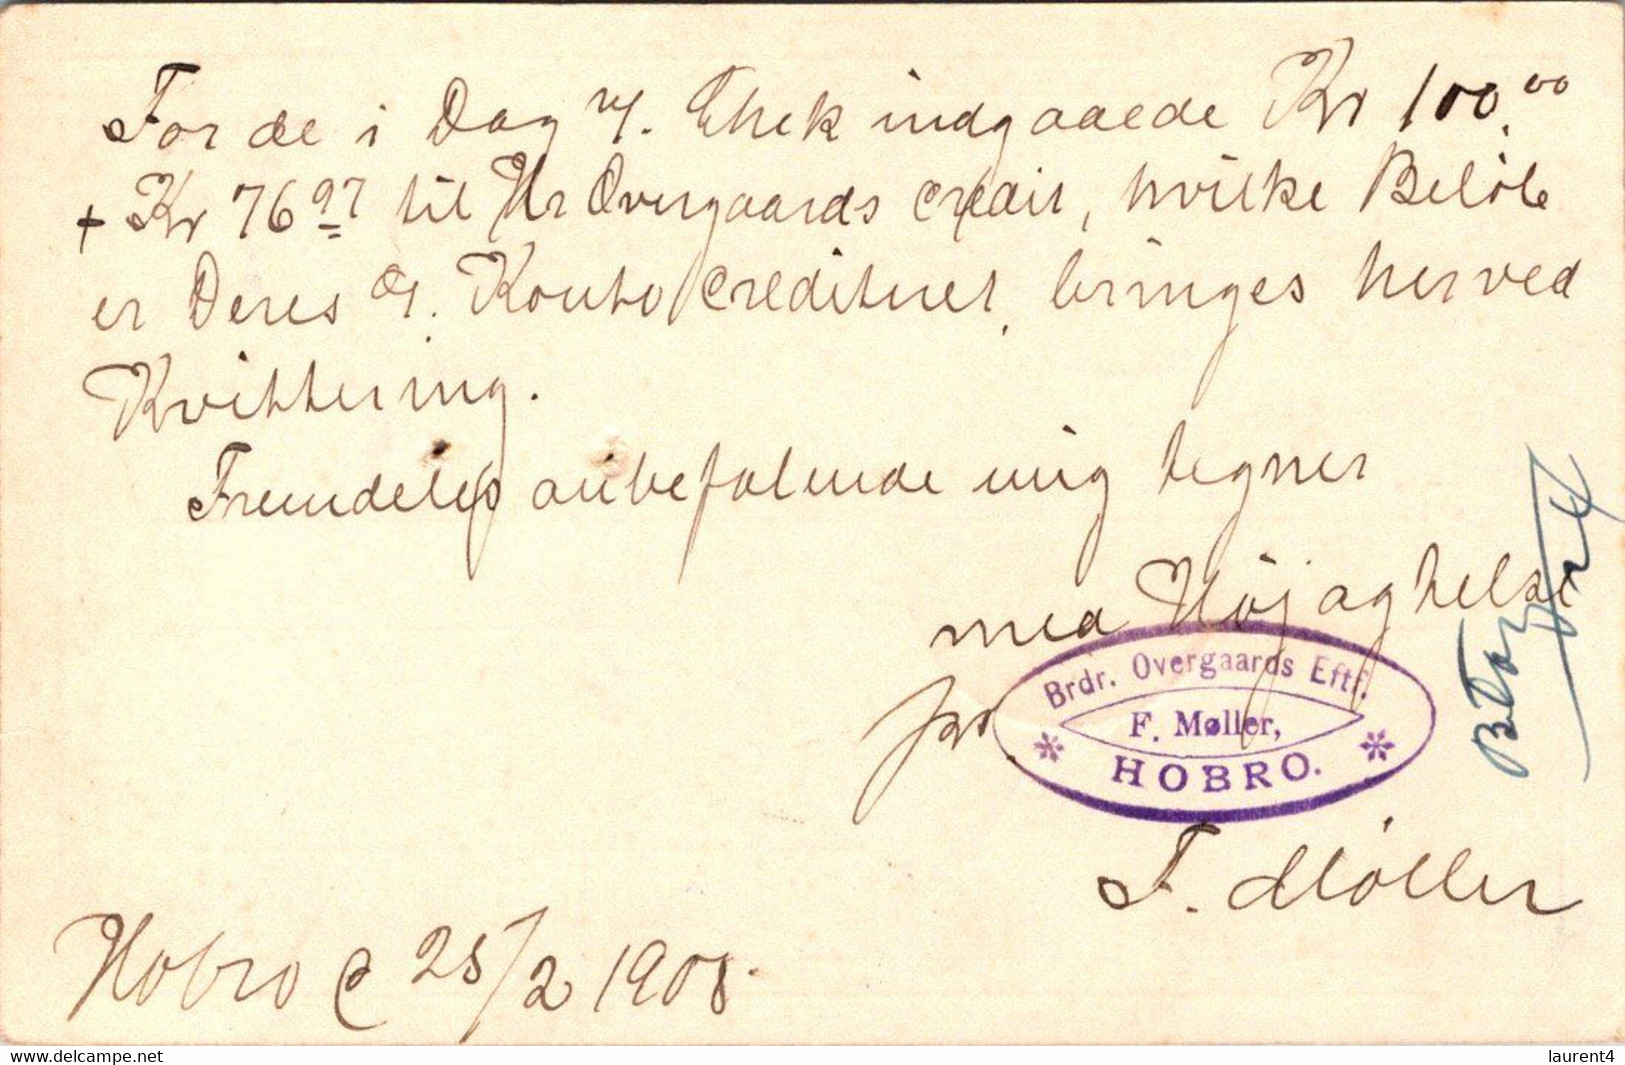 For de i Dag pr. Chek indgaaede Kr 100.00
+ Kr 76 97 til Hr Overgaards Credit, hvilke Beløb
er Deres Konto crediteret, bringes herved
Kvittering.
Fremdeles anbefalende mig tegner
med Højagtelse
pr
Brdr. Overgaards Eftf.
F. Møller,
HOBRO.
F. Møller
Hobro d 25/2 1908.
www.delcampe.net
laurent4